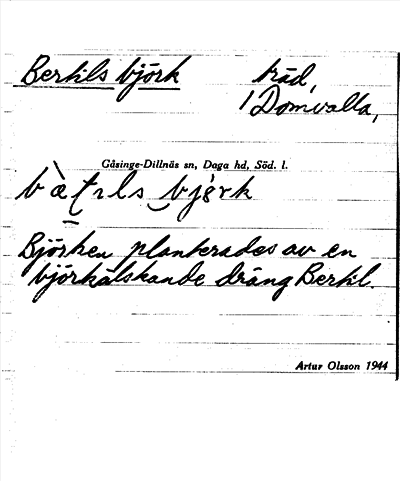 Bertils björk träd,
/ Domvalla,
Gåsinge-Dillnäs sn, Daga hd, Söd. l.
bjørk
Björken planterades av en
björkälskande dräng Bertil.
Artur Olsson 1944